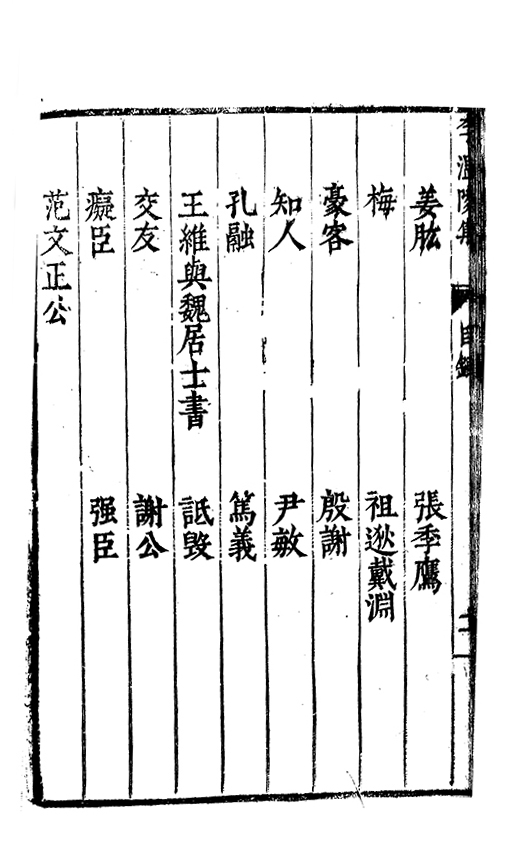 李溫陵集 目錄
姜肱 張季鷹
梅 祖逖戴淵
豪客 殷謝
知人 尹敏
孔融 篤義
王維與魏居士書 詆毀
交友 謝公
癡臣 强臣
范文正公